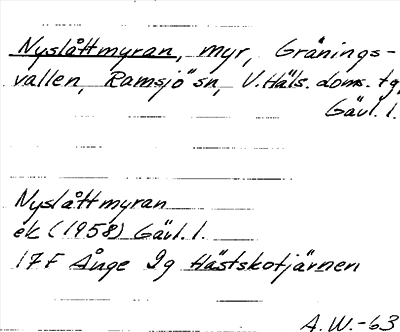 Nyslåttmyran, myr, Gränings-
vallen, Ramsjö sn, V. Häls. doms. tg,
Gävl. l.
Nyslåttmyran
ek (1958) Gävl. l.
17F Ånge 2g Hästskotjärnen
A.W.-63